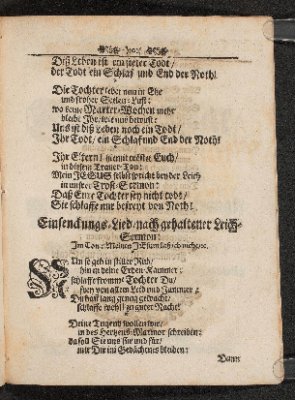 Diß Leben ist ein steter Todt/
der Todt ein Schlaf und End der Noth!
Die Tochter lebet nun in Ehr
und froher Seelen-Lust:
wo keine Marter-Wochen mehr
bleibt Ihr, wie uns bewust:
Uns ist diß Leben noch ein Todt/
Ihr Todt/ ein Schlaf und End der Noth!
Ihr Eltern! hiemit tröstet Euch/
in diesem Trauer-Ton:
Mein JESUS selbst spricht bey der Leich
in unsrer Trost-Sermon:
Daß Eure Tochter sey nicht todt/
Sie schlaffe nur befreyt von Noth!
Einsenckungs-Lied/nach gehaltener Leich-
Sermon:
Im Ton: Meinen JEsum laß ich nicht/ec.
NUn so geh in stiller Ruh/
hin in deine Erden-Kammer:
schlaffe fromme Tochter Du/
frey von allem Leid und Jammer:
Du hast lang genug gewacht/
schlaffe wohl! zu guter Nacht!
Deine Tugend wollen wir/
in des Hertzens-Marmor schreiben:
da soll Sie uns für und für/
mit Dir im Gedächtnis bleiben:
Dann